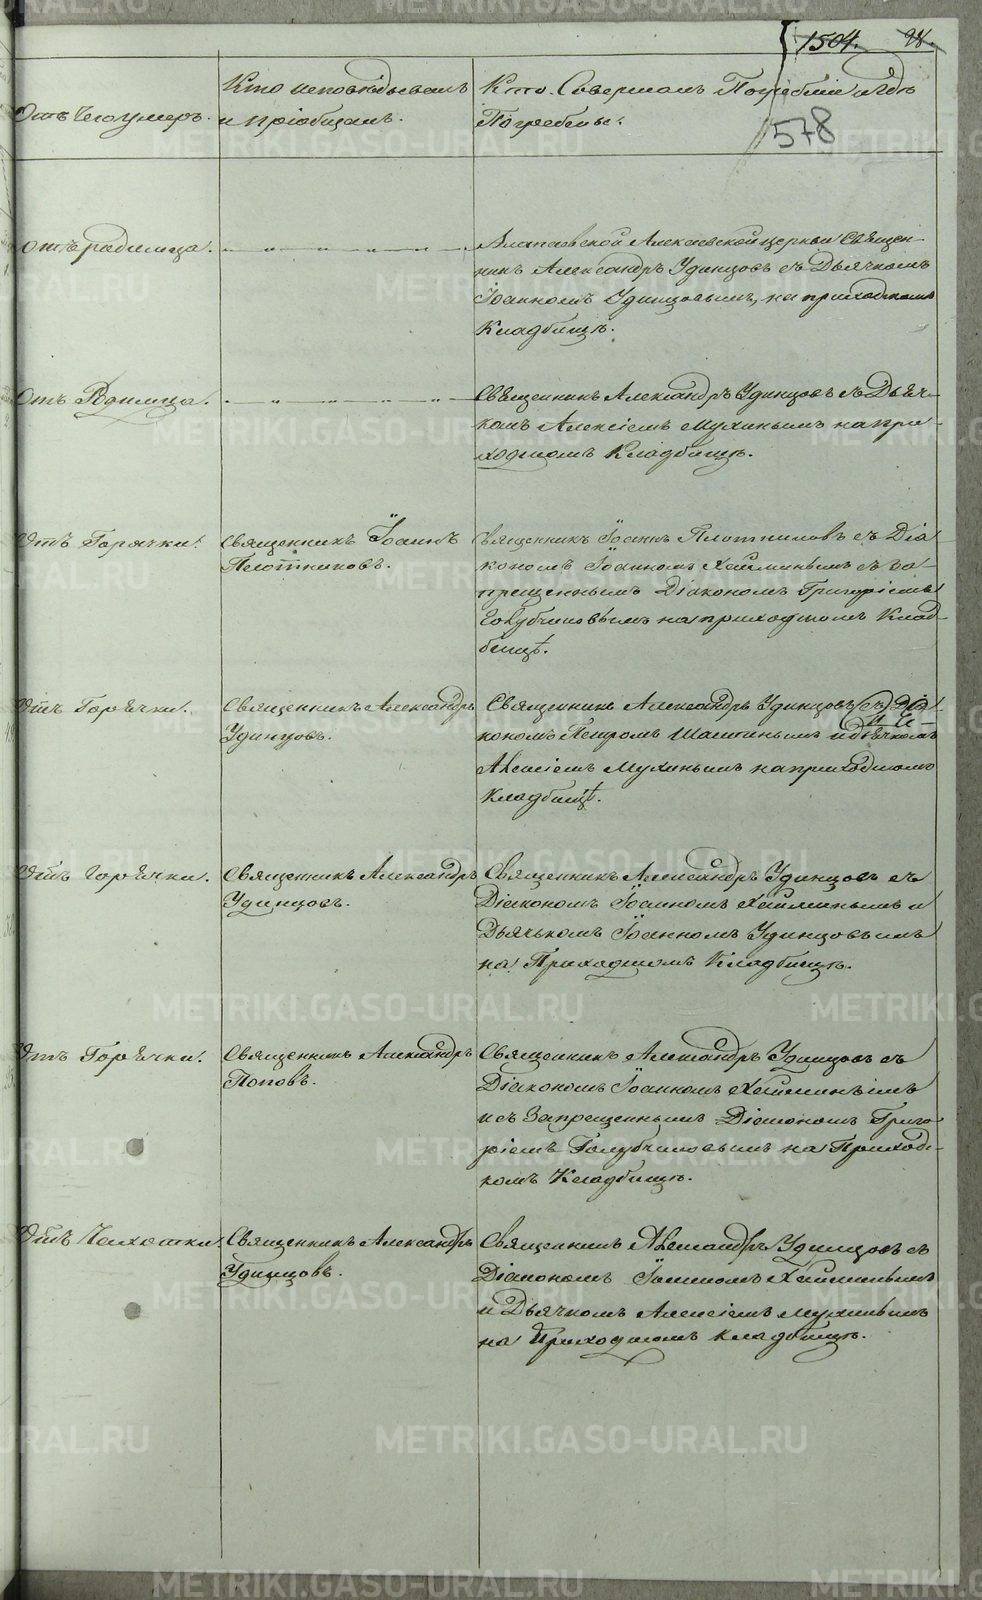 1504. 98.
578
Отъ чего умеръ.
Кто исповѣдывалъ
и пріобщалъ.
Кто Совершалъ Погребеніе и гдѣ
Погребены.
Отъ родимца.
Алапаевской Алексѣевской церкви Священ-
никъ Александръ Удинцовъ съ Дьячкомъ
Іоанномъ Удинцовымъ, на приходскомъ
Кладбищѣ.
Отъ Родимца.
Священникъ Александръ Удинцовъ съ Дьяч-
комъ Алексіемъ Мухинымъ на при-
ходскомъ Кладбищѣ.
Отъ Горячки.
Священникъ Іоаннъ
Плотниковъ.
Священникъ Іоаннъ Плотниковъ съ Діа-
кономъ Іоанномъ Хайминымъ съ за-
прещеннымъ Діакономъ Григоріемъ
Голубчиковымъ на приходскомъ Клад-
бищѣ.
Отъ Горячки.
Священникъ Александръ
Удинцовъ.
Священникъ Александръ Удинцовъ съ Діа-
кономъ Петромъ и дьячкомъ
Алексіемъ Мухинымъ на приходскомъ
Кладбищѣ.
Отъ Горячки.
Священникъ Александръ
Удинцовъ.
Священникъ Александръ Удинцовъ съ
Діакономъ Іоанномъ Хайминымъ и
Дьячькомъ Іоанномъ Удинцовымъ
на Приходскомъ Кладбищѣ.
Отъ Горячки.
Священникъ Александръ
Поповъ.
Священникъ Александръ Удинцовъ съ
Діакономъ Іоанномъ Хайминымъ
и съ Запрещеннымъ Діакономъ Григо-
ріемъ Голубчиковымъ на Приходс-
комъ Кладбищѣ.
Отъ Чахотки.
Священникъ Александръ
Удинцовъ.
Священникъ Александръ Удинцовъ съ
Діакономъ Іоанномъ Хайминымъ
и Дьячкомъ Алексіемъ Мухинымъ
на Приходскомъ кладбищѣ.
METRIKI.GASO-URAL.RU